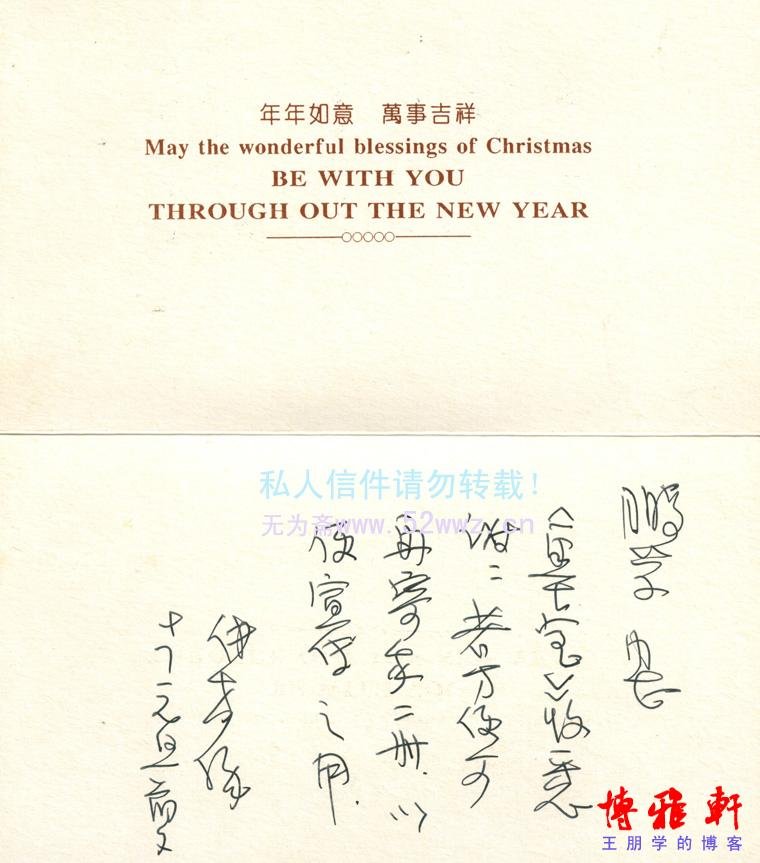 年年如意 萬事吉祥
May the wonderful blessings of Christmas
BE WITH YOU
THROUGH OUT THE NEW YEAR
私人信件请勿转载！
无为斋www.52wwz.cn
鹏学
》收悉
谢谢若方便可
再寄来二册.以
便宣传之用.
元旦前夕
博雅軒
王朋学的博客